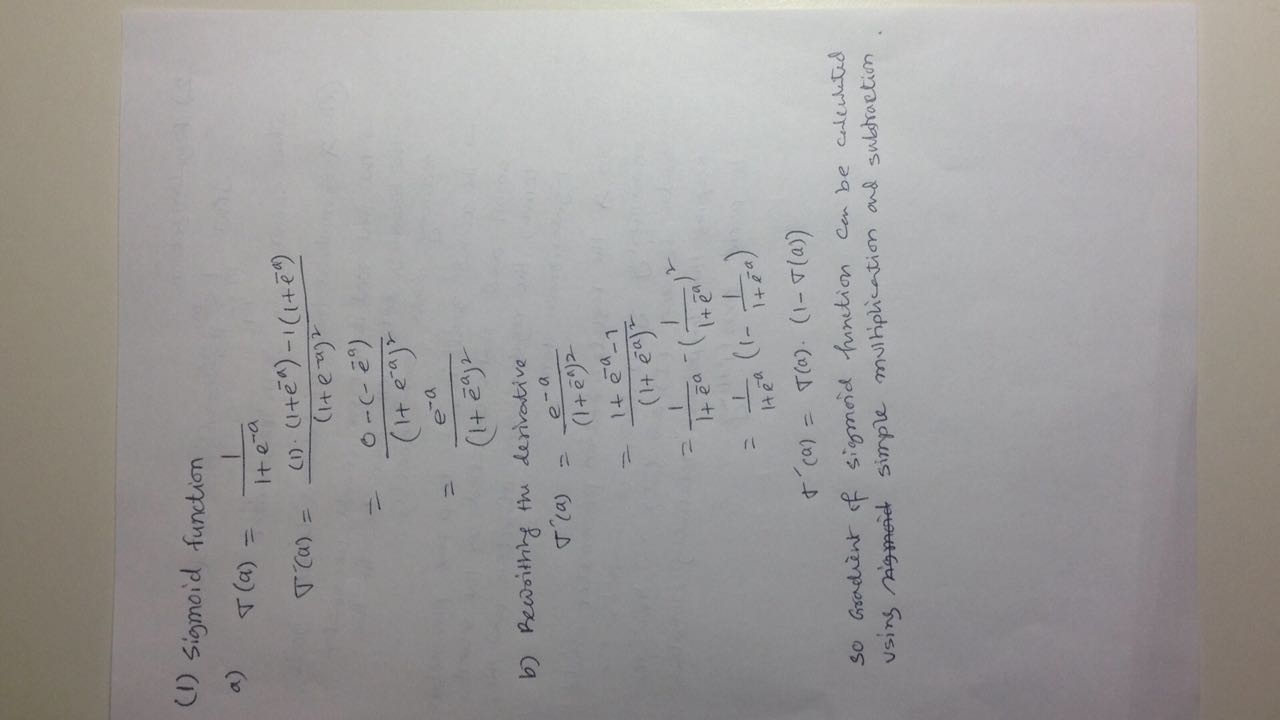 (1) Sigmoid function
a) σ(a) = 1 / (1 + e^-a)
σ'(a) = ((1)'. (1 + e^-a) - 1 (1 + e^-a)') / (1 + e^-a)^2
= (0 - (-e^-a)) / (1 + e^-a)^2
= e^-a / (1 + e^-a)^2
b) Rewritting the derivative
σ'(a) = e^-a / (1 + e^-a)^2
= (1 + e^-a - 1) / (1 + e^-a)^2
= 1 / (1 + e^-a) - (1 / (1 + e^-a))^2
= 1 / (1 + e^-a) (1 - 1 / (1 + e^-a))
σ'(a) = σ(a). (1 - σ(a))
so Gradient of sigmoid function can be calculated
using sigmoid simple multiplication and subtraction.